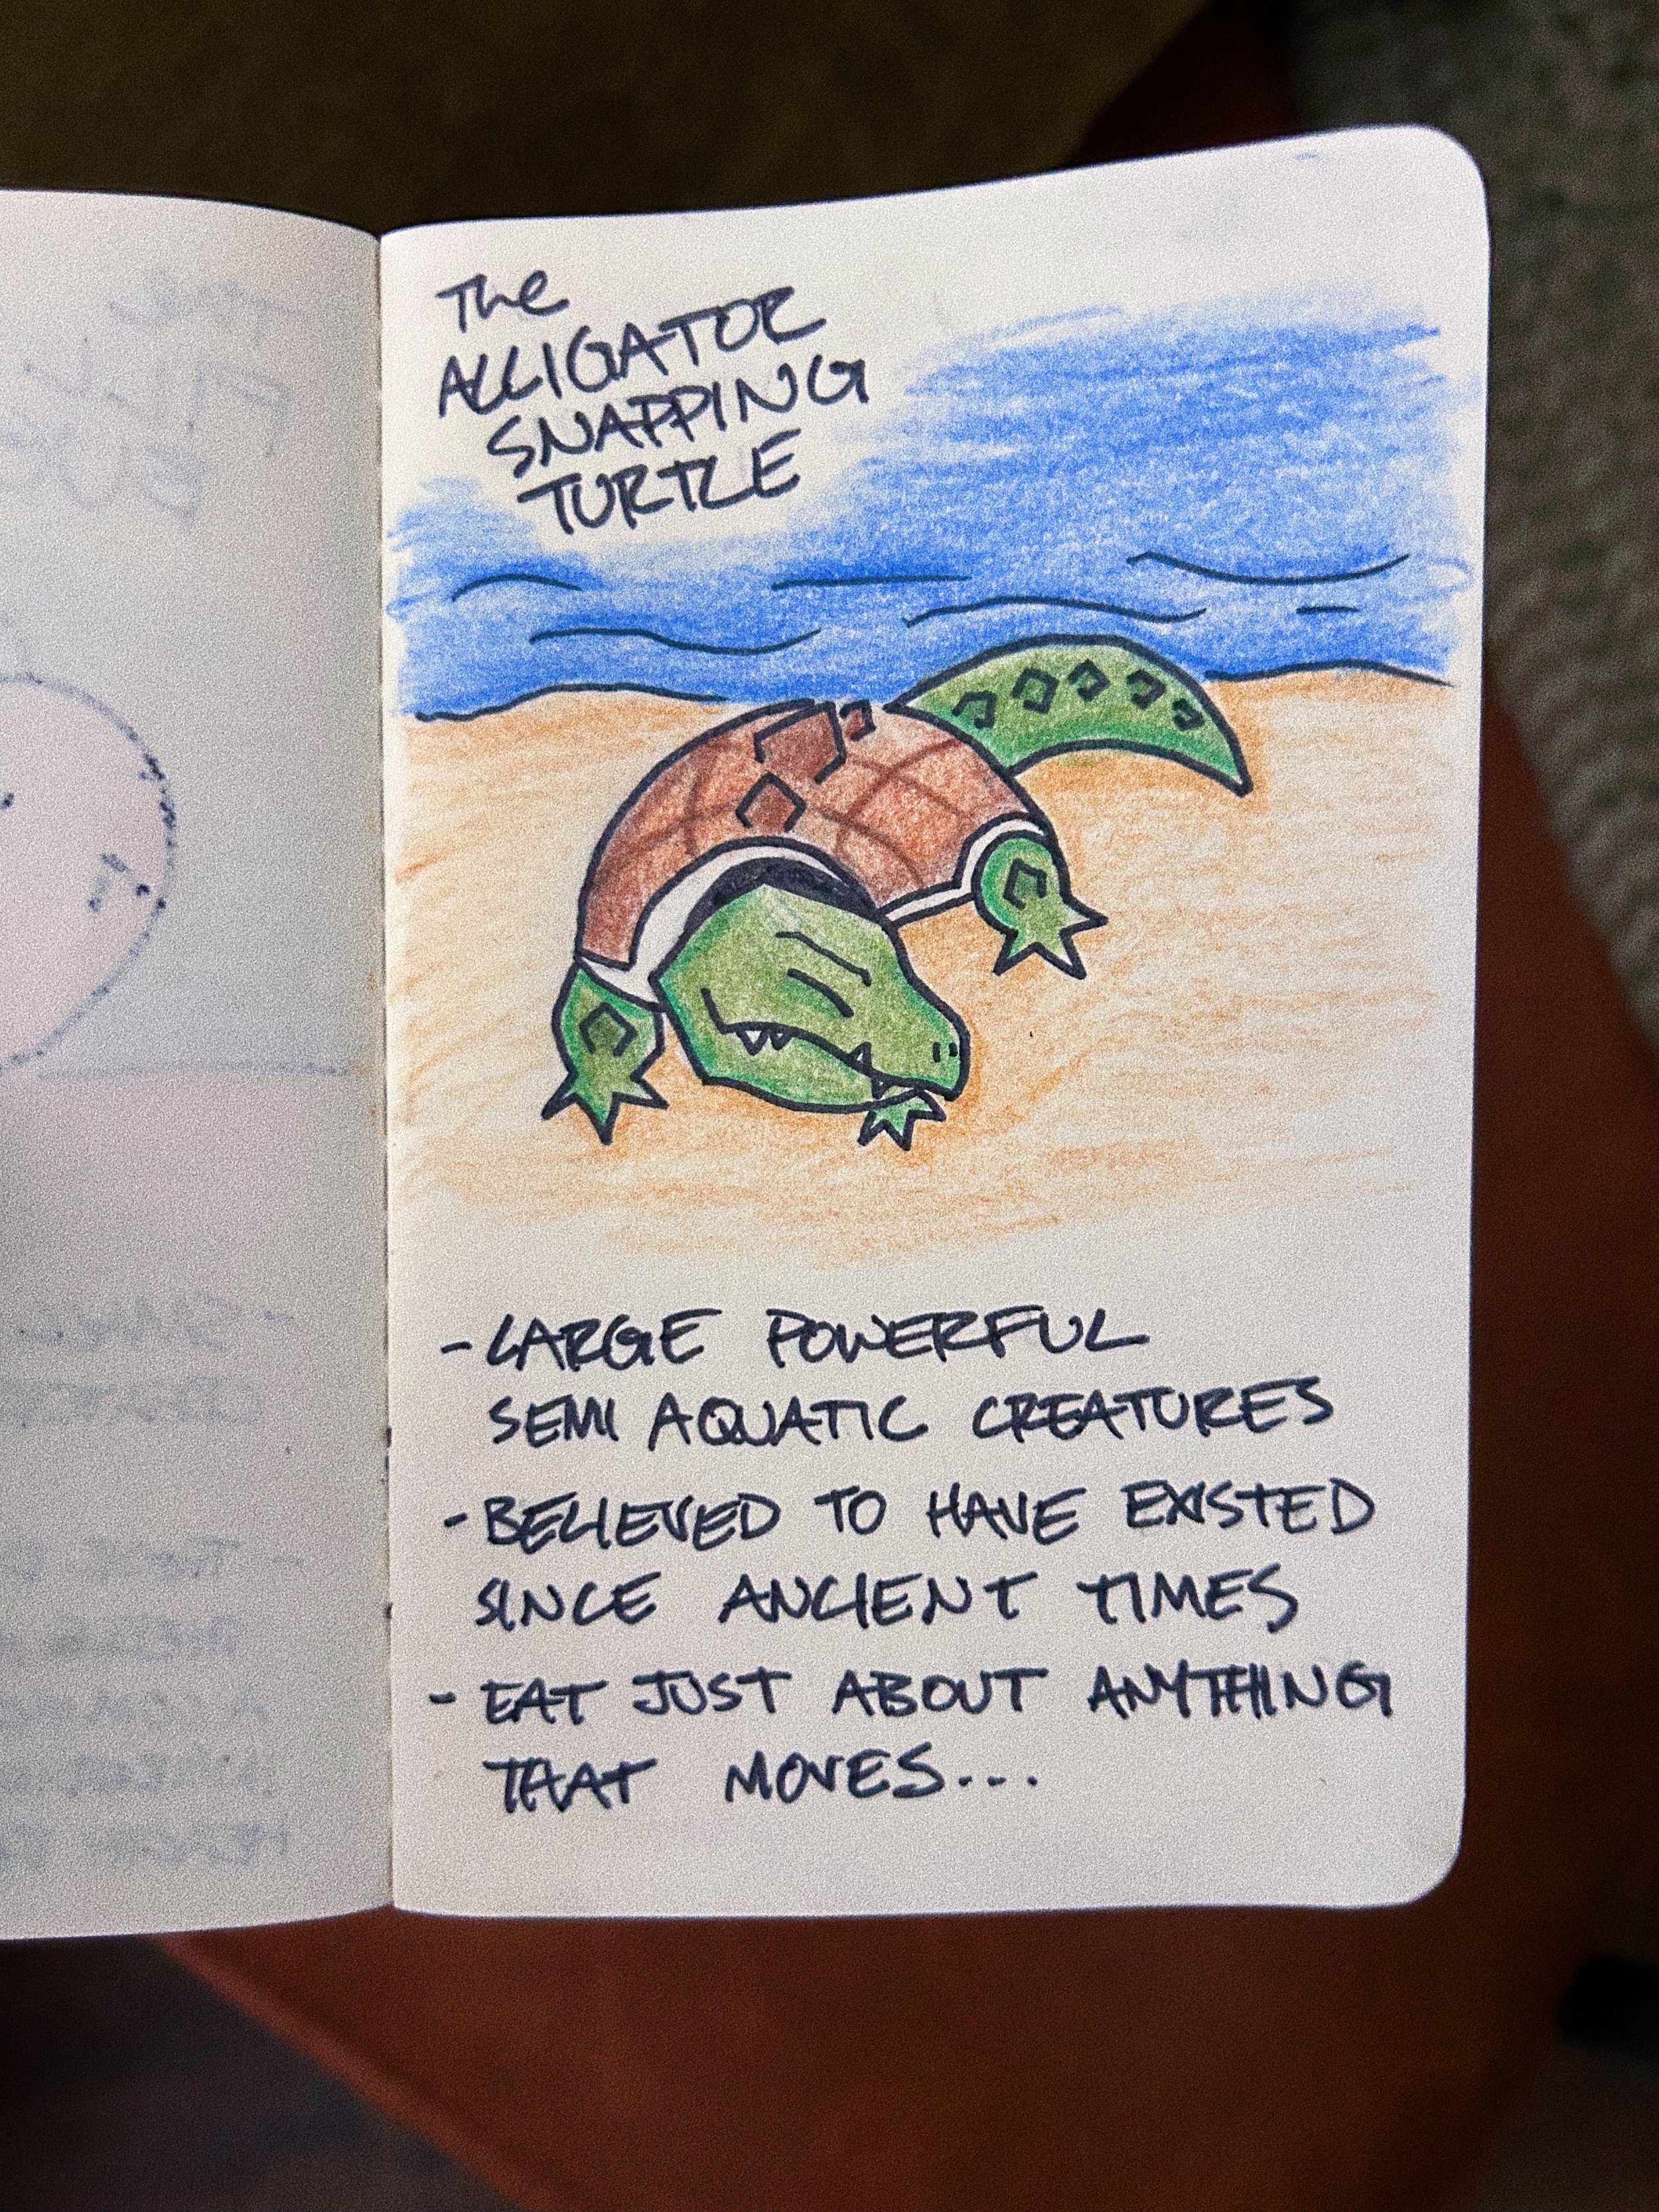 The
ALLIGATOR
SNAPPING
TURTLE
- LARGE POWERFUL
SEMI AQUATIC CREATURES
- BELIEVED TO HAVE EXISTED
SINCE ANCIENT TIMES
- EAT JUST ABOUT ANYTHING
THAT MOVES...